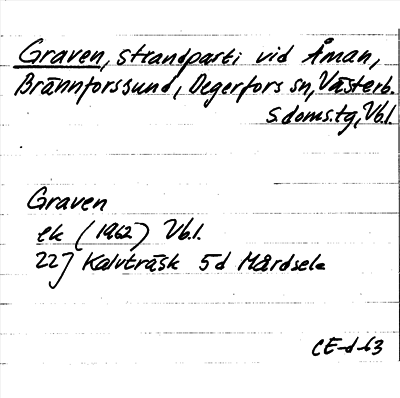 Graven, strandparti vid Åman,
Brännforssund, Degerfors sn, Västerb.
s. doms.tg, Vb.l.
Graven
ek (1962) Vb.l.
22J Kalvträsk 5d Mårdsele
CE-d-63